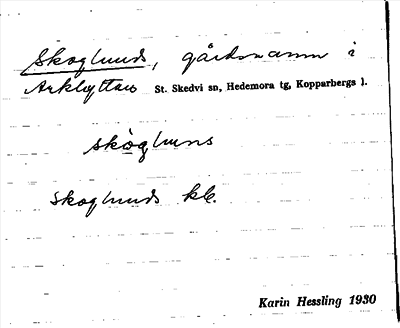 Skoglunds, gårdsnamn i
Arkhyttan St. Skedvi sn, Hedemora tg, Kopparbergs l.
skòglu̇ns
Skoglunds kb.
Karin Hessling 1930